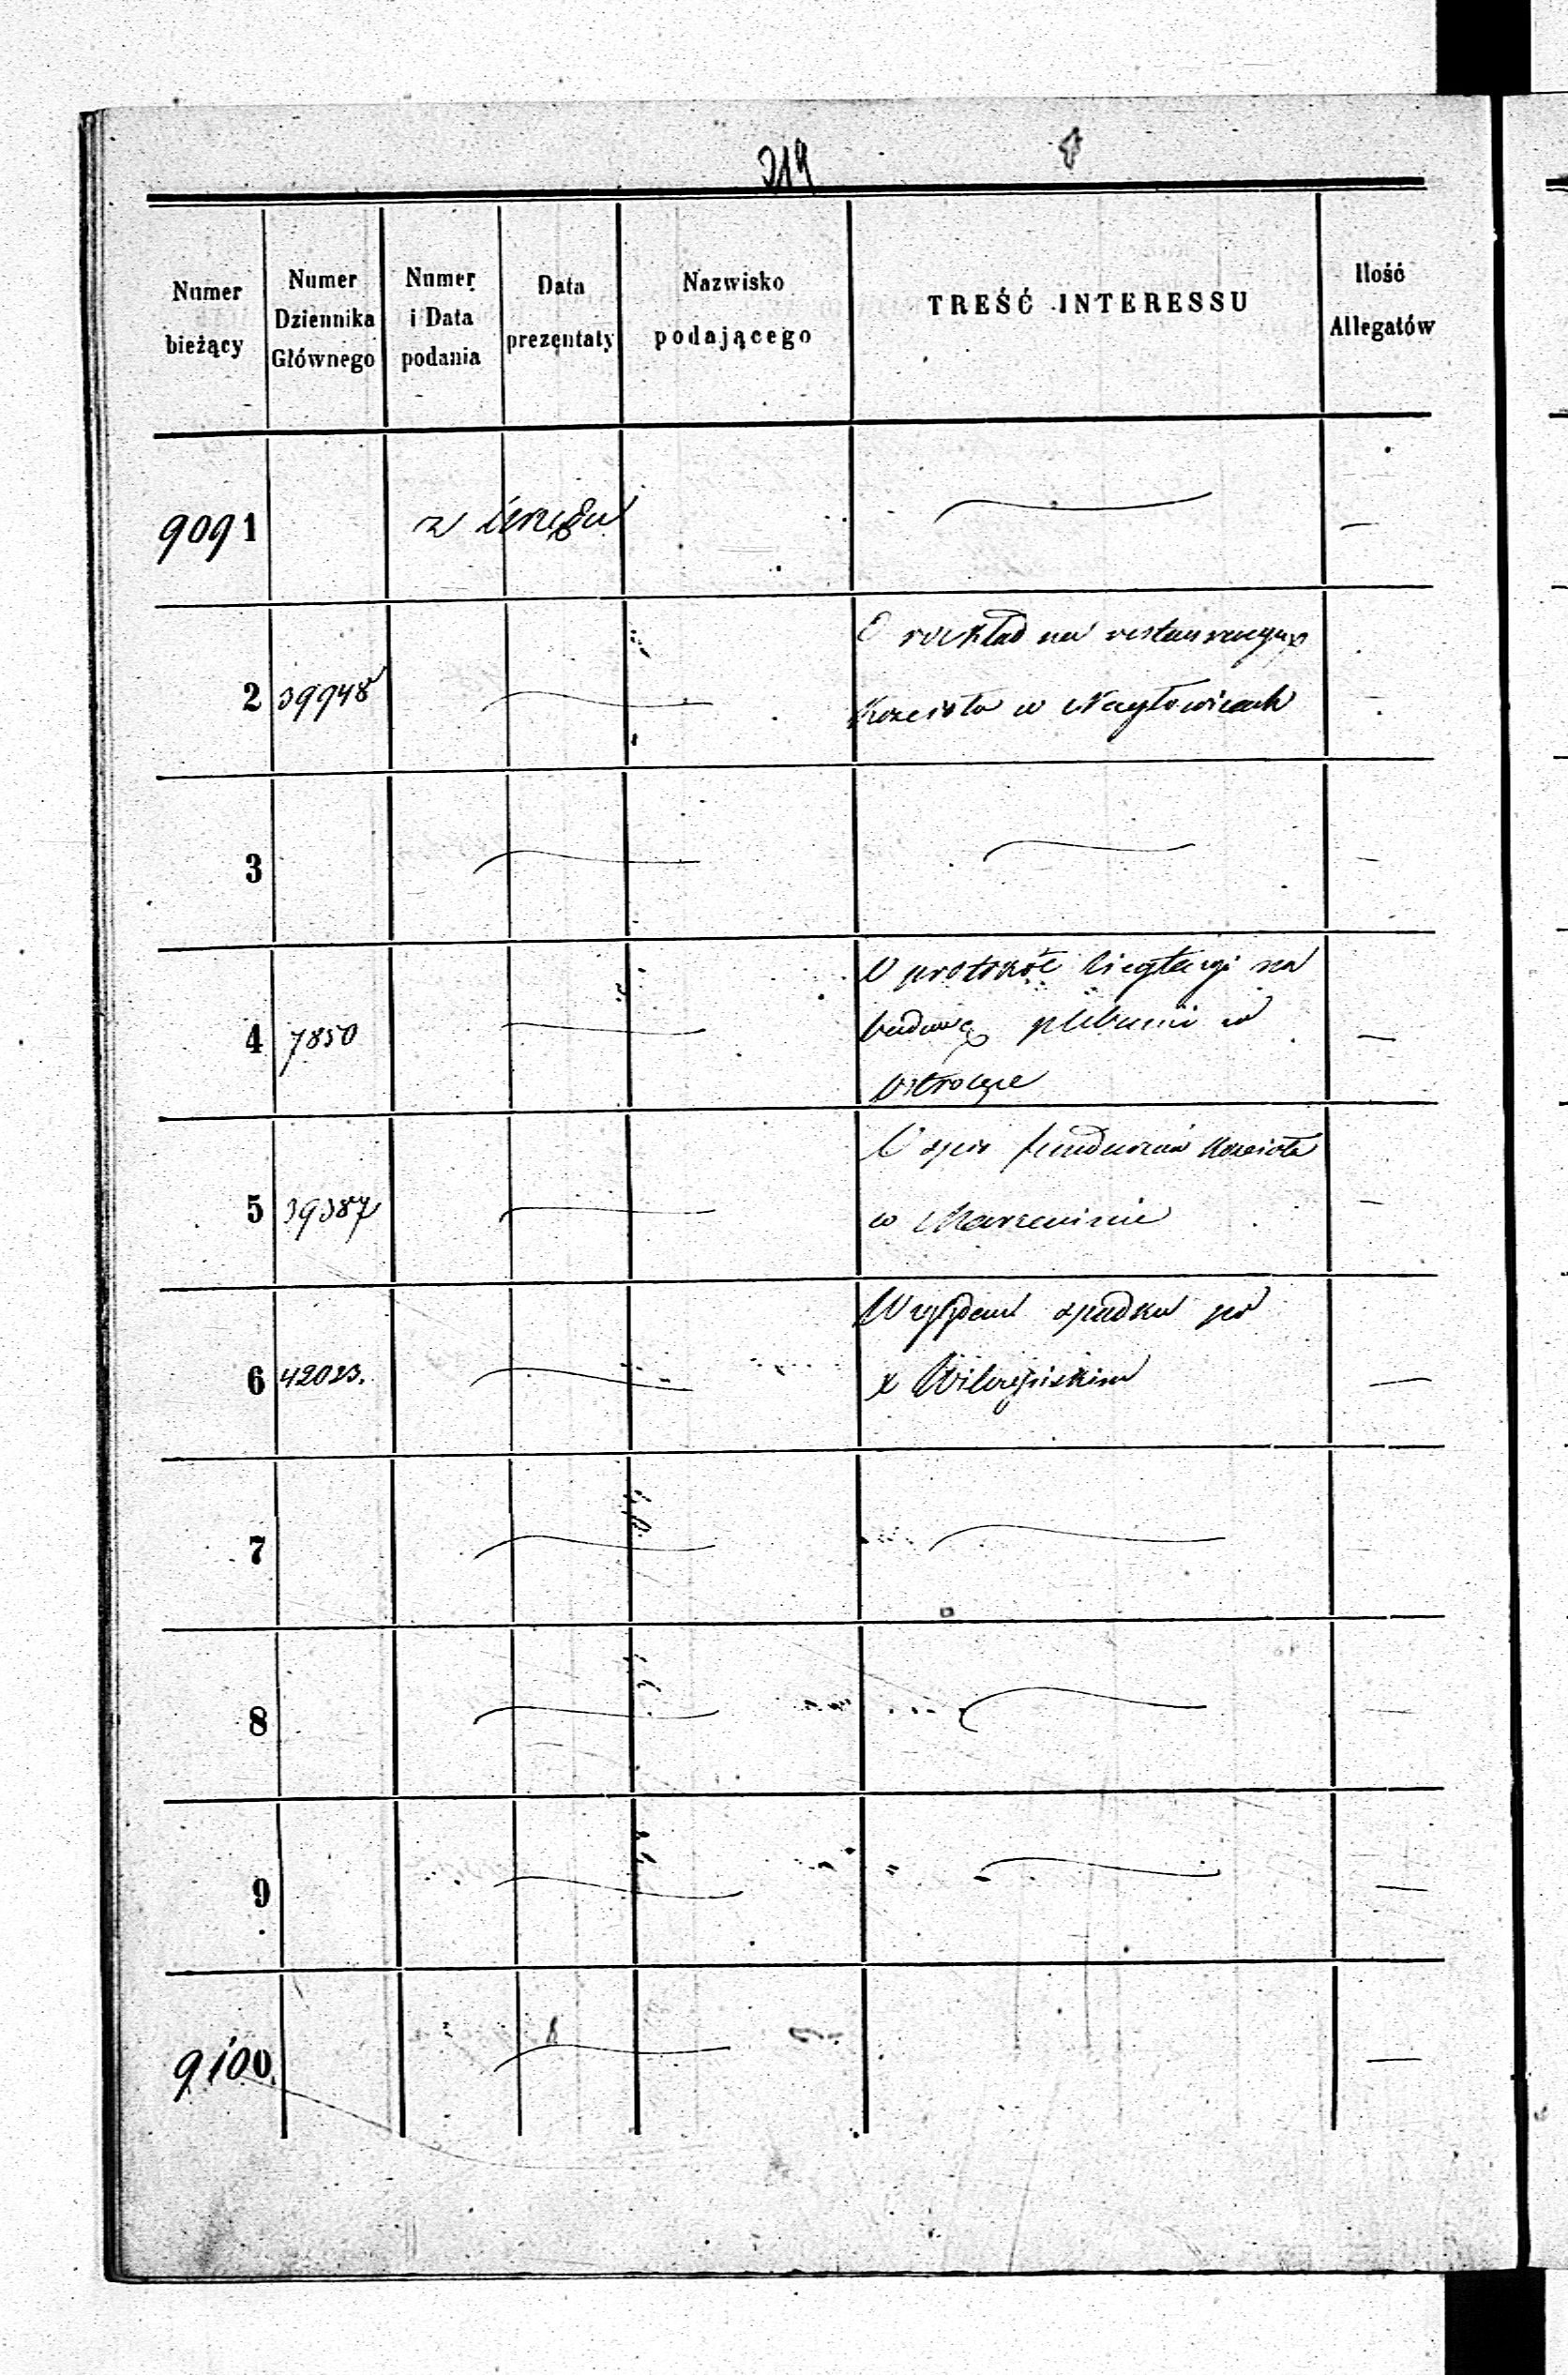 219
Numer bieżący
Numer Dziennika Głównego
Numer i Data podania
Data prezentaty
Nazwisko podającego
TREŚĆ INTERESSU
Ilość Allegatów
9091 z Urzędu —
2 39948 O rozkład na restauracyą
Kościoła w Nagłowicach
3 —
4 7850 O protokół licytacyi na
budowę plebanii w
Ostrołęce
5 39387 O spis funduszów Kościoła
w Marzeninie
6 42023. Względem spadku po
X Wilczyńskim
7
8 —
9 —
9100 —